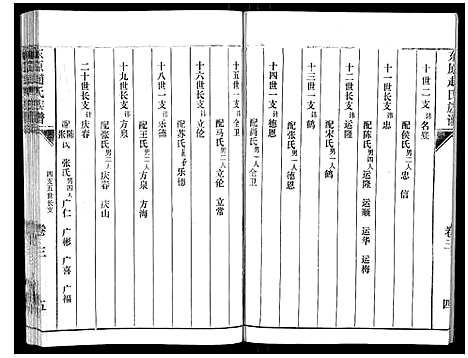 东原赵氏族谱
卷三
四
十世二支讳名宸
配侯氏男二人忠 信
十一世长支讳忠
配陈氏男四人运隆 运顺 运华 运梅
十二世长支讳运隆
配宋氏男一人鹤
十三世二支讳鹤
配张氏男一人德恩
十四世一支讳德恩
配尚氏男一人全卫
十五世一支讳全卫
配马氏男二人立伦 立常
十六世长支讳立伦
配苏氏乐德
十八世一支讳
配王氏男二人方泉 方海
十九世长支讳方泉
配张氏男二人庆春 庆山
二十世长支讳庆春
配陈氏 张氏男四人广仁 广彬 广喜 广福
四支五世长支
东原赵氏族谱
卷三
五